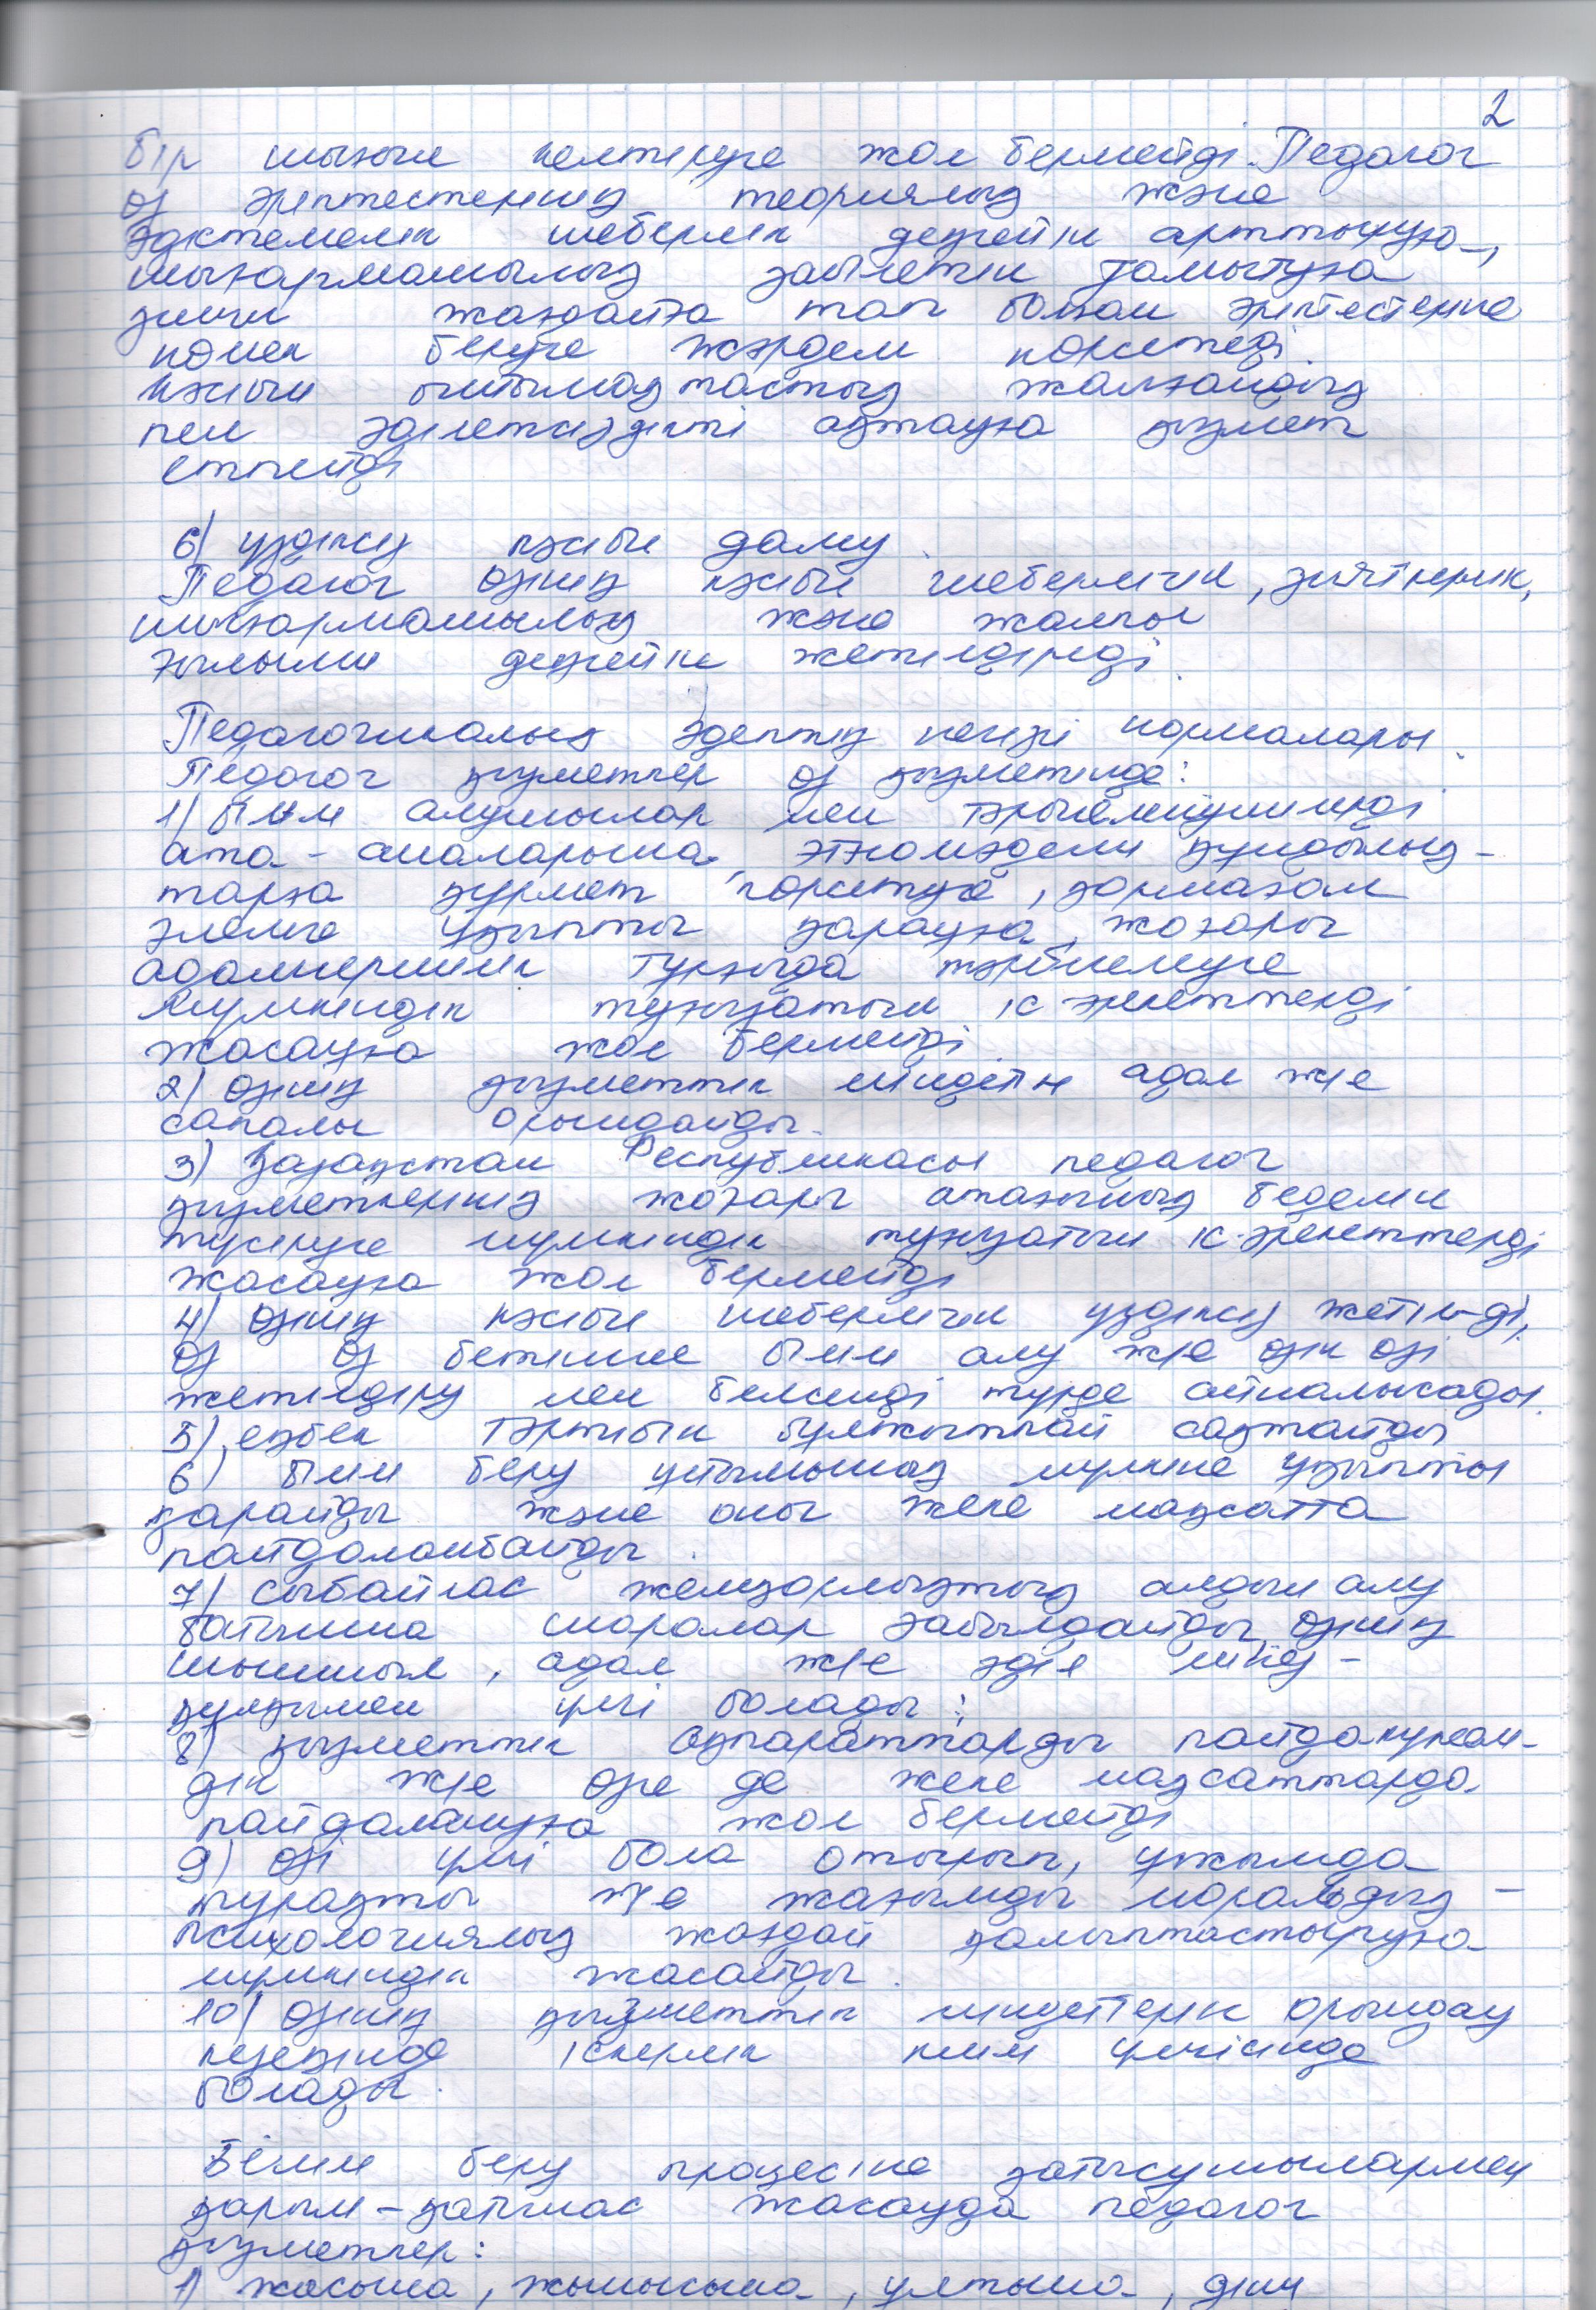 2
бір шығын келтіруге жол бермейді. Педагог
өз әріптестерінің теориялық және
әдістемелік шеберлік деңгейін арттыруға,
шығармашылық қабілетін дамытуға
қиын жағдайға тап болған әріптестеріне
көмек беруге жәрдем көрсетеді.
Кәсіби ынтымақтастық жалғандық
пен әділетсіздікті ақтауға қызмет
етпейді
6) үздіксіз кәсіби даму.
Педагог өзінің кәсіби шеберлігін, зияткерлік,
шығармашылық және жалпы
ғылыми деңгейін жетілдіреді.
Педагогикалық әдептің негізгі нормалары.
Педагог қызметкер өз қызметінде:
1) Білім алушылар мен тәрбиеленушілерді
ата-аналарына, этномәдени құндылық-
тарға құрмет көрсетуге, қоршаған
әлемге ұқыпты қарауға, жоғары
адамгершілік тұрғыда тәрбиелеуге
Мүмкіндік туғызатын іс әрекеттерді
жасауға жол бермейді.
2) өзінің қызметтік міндетін адал ж/е
сапалы орындайды.
3) Қазақстан Республикасы педагог
қызметкерінің жоғары атағының беделін
түсіруге мүмкіндік туғызатын іс-әрекеттерді
жасауға жол бермейді
4) өзінің кәсіби шеберлігін үздіксіз жетіл-ді,
өз өз бетінше білім алу ж/е өзін өзі
жетілдіру мен белсенді түрде айналысады.
5) еңбек тәртібін бұлжытпай сақтайды
6) білім беру ұйымының мүлкіне ұқыпты
қарайды және оны жеке мақсатта
пайдаланбайды.
7) сыбайлас жемқорлықтың алдын алу
бойынша шаралар қабылдайды, өзінің
шыншыл, адал ж/е әділ мінез-
құлқымен үлгі болады;
8) қызметтік ақпараттарды пайдакүнем-
дік ж/е өзге де жеке мақсаттарда
пайдалануға жол бермейді
9) өзі үлгі бола отырып, ұжымда
тұрақты ж/е жағымды моральдық -
психологиялық жағдай қалыптастыруға
мүмкіндік жасайды.
10) өзінің қызметтік міндеттерін орындау
кезеңінде іскерлік киім үлгісінде
болады.
Білім беру процесіне қатысушылармен
қарым-қатынас жасауда педагог
қызметкер:
1) жасына, жынысына, ұлтына, діни